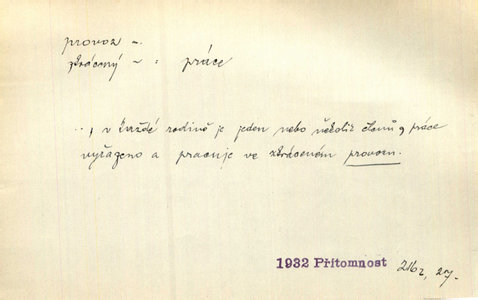 provoz –.
zkrácený – : práce
.., v každé rodině je jeden nebo několik členů z práce
vyřazeno a pracuje ve zkráceném provozu.
1932 Přítomnost 216, 27.